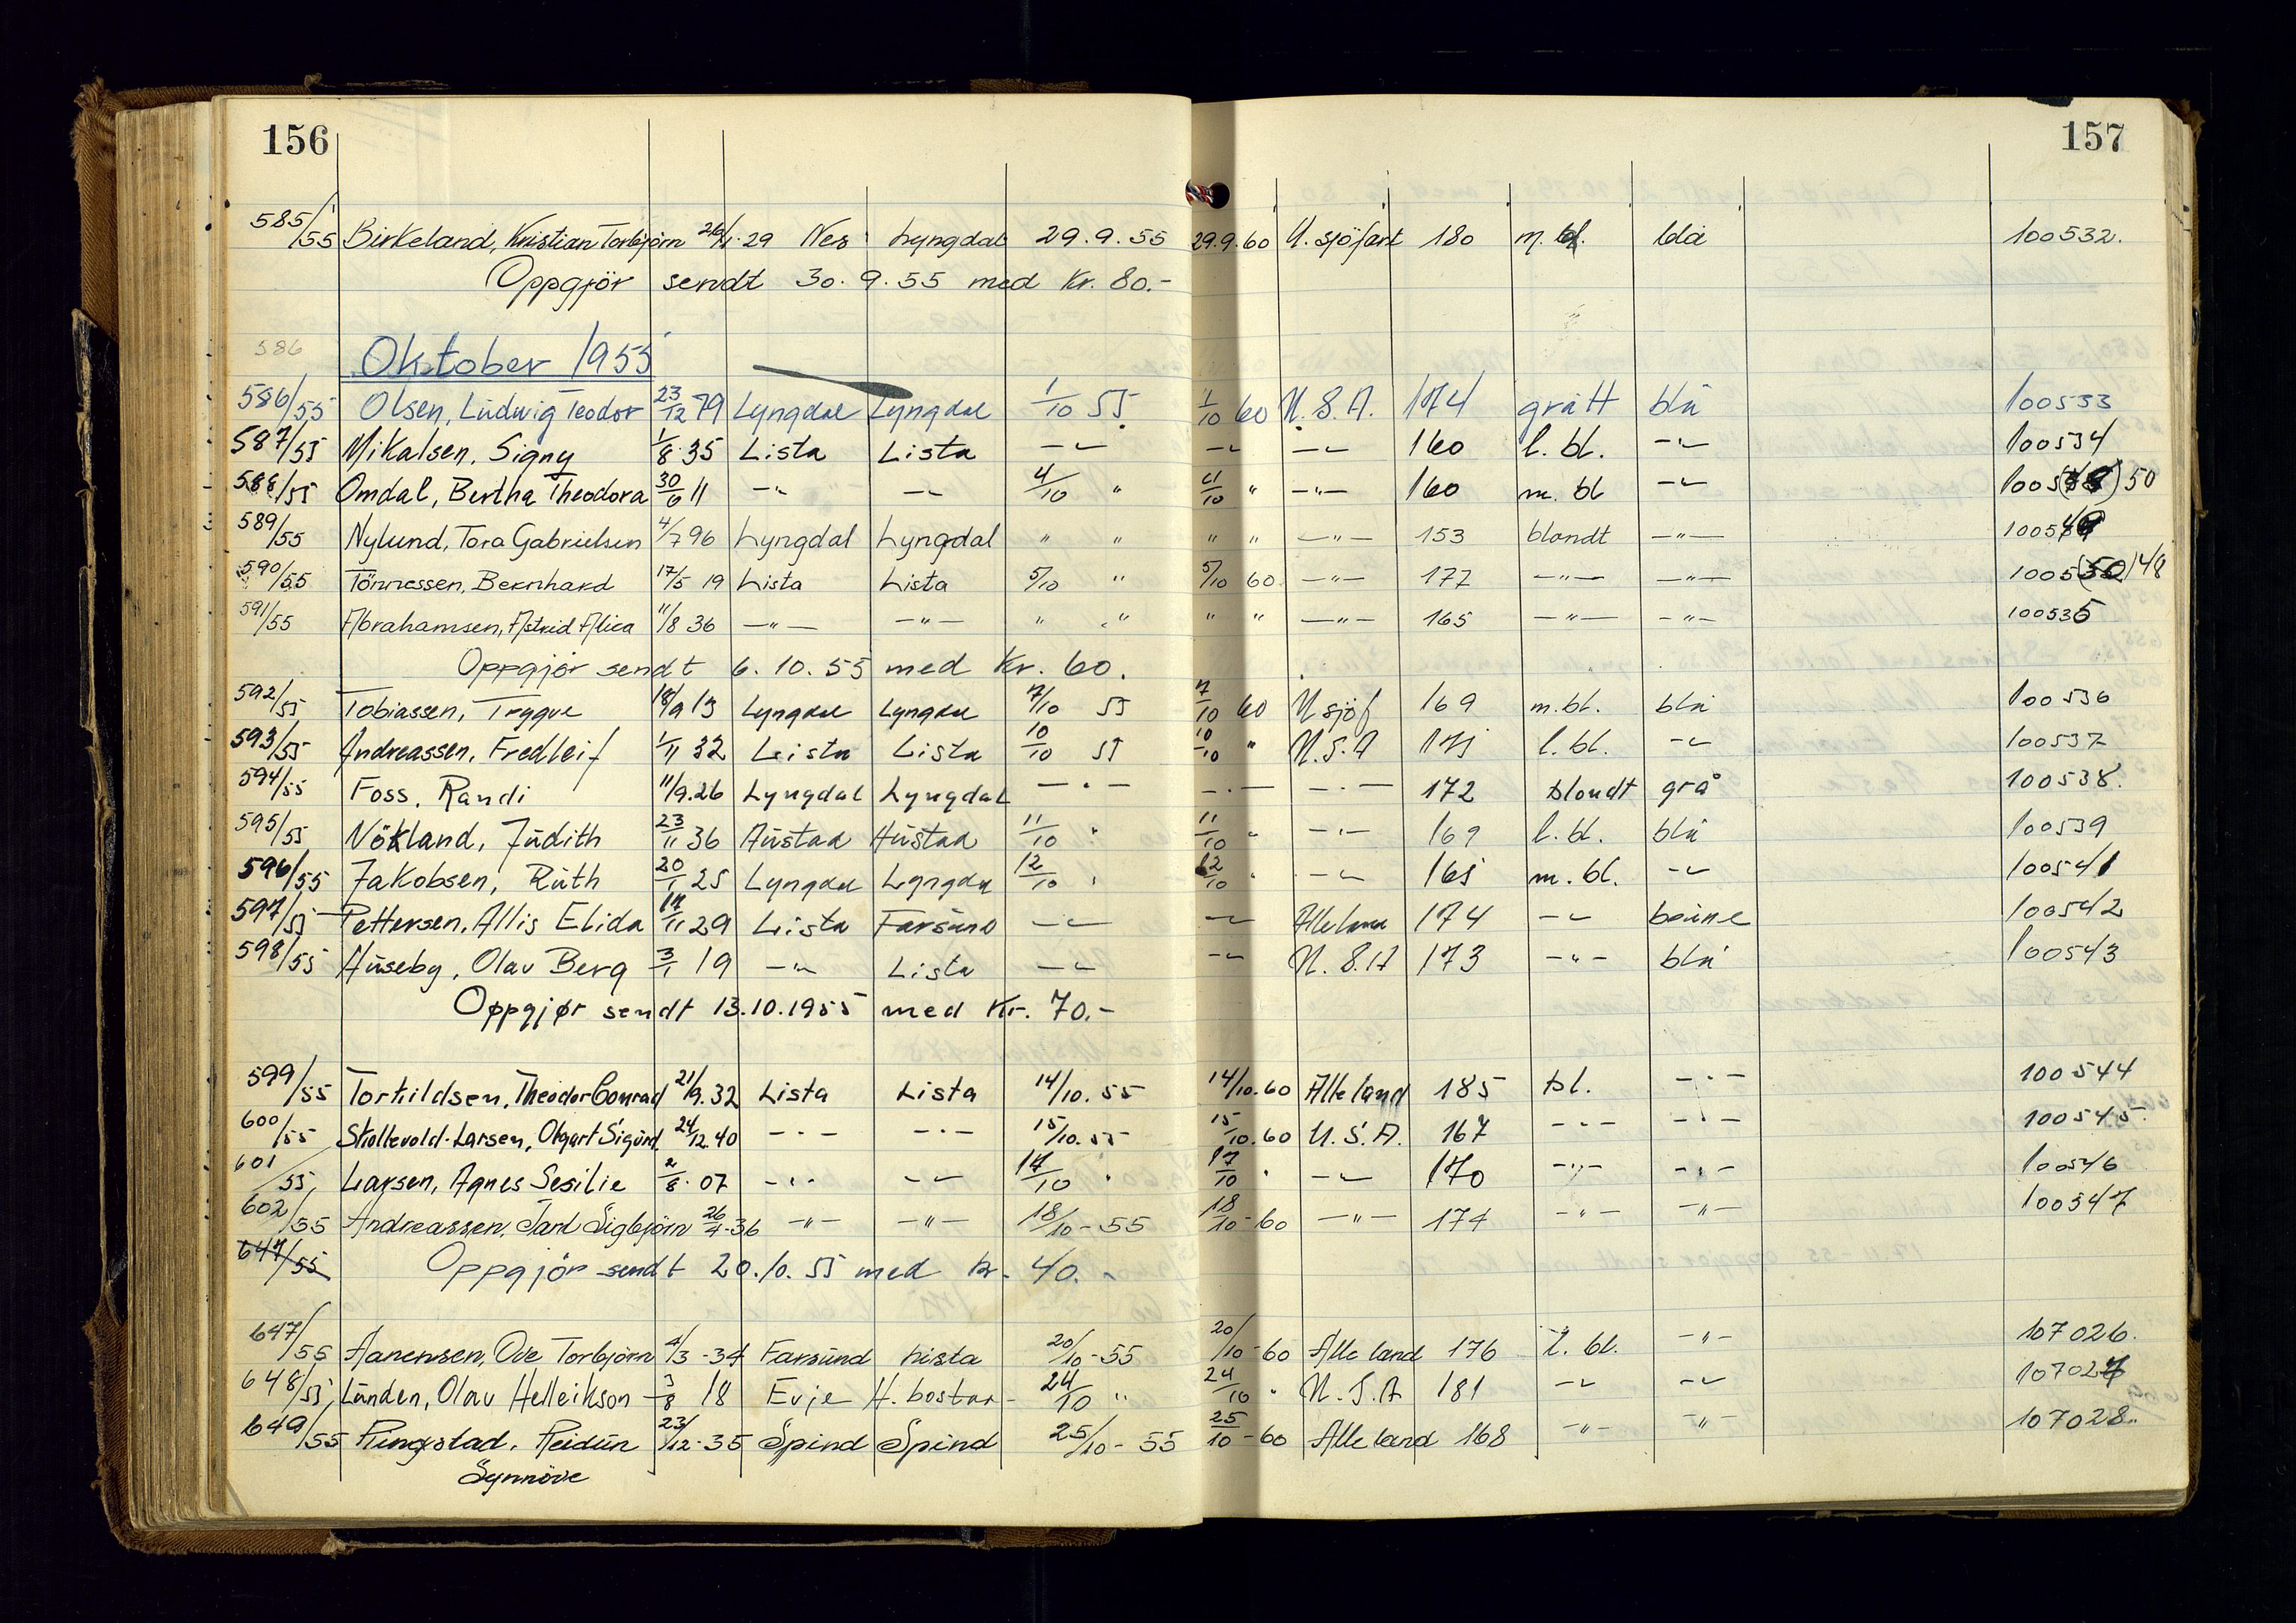 156
157
585/55 Birkeland, Kristian Torbjörn 26/1.29 Nes Lyngdal 29.9.55 29.9.60 U.sjöfart 180 m.bl. blå 100532.
Oppgjör sendt 30.9.55 med Kr. 80.-
586 Oktober 1955
586/55 Olsen, Ludwig Teodor 23/12 79 Lyngdal Lyngdal 1/10 55 1/10 60 U.S.A. 174 grått blå 100533
587/55 Mikalsen, Signy 1/8 35 Lista Lista -"- -"- -"- 160 l. bl. -"- 100534
588/55 Omdal, Bertha Theodora 30/10 11 -"- -"- 4/10 " 4/10 " -"- 160 m. bl -"- 1005 50
589/55 Nylund, Tora Gabrielsen 4/7 96 Lyngdal Lyngdal " " " " -"- 153 blandt -"- 100549
590/55 Tönnessen, Bernhard 17/5 19 Lista Lista 5/10 " 5/10 60 -"- 177 -"- -"- 1005(50)48
591/55 Abrahamsen, Astrid Alica 11/8 36 -"- -"- " " " " -"- 165 -"- -"- 100535
Oppgjör sendt 6.10.55 med Kr. 60.
592/55 Tobiassen, Trygve 18/9 13 Lyngdal Lyngdal 7/10 55 7/10 60 U sjöf 169 m.bl. blå 100536
593/55 Andreassen, Fredleif 1/11 32 Lista Lista 10/10 55 10/10 " U.S.A 175 l. bl. -"- 100537
594/55 Foss, Randi 11/9.26 Lyngdal Lyngdal -"- -"- -"- 172 blondt grå 100538.
595/55 Nökland, Judith 23/11 36 Austad Austad 11/10 " 11/10 " -"- 169 l. bl. blå 100539
596/55 Jakobsen, Ruth 20/1 25 Lyngdal Lyngdal 12/10 " 12/10 " -"- 165 m. bl. -"- 100541
597/55 Pettersen, Allis Elida 14/11 29 Lista Farsund -"- -"- Alle land 174 -"- brune 100542
598/55 Huseby, Olav Berg 3/1 19 -"- Lista -"- -"- U.S.A 173 -"- blå 100543
Oppgjør sendt 13.10.1955 med Kr. 70.-
599/55 Torkildsen, Theodor Conrad 21/9.32 Lista Lista 14/10.55 14/10.60 Alle land 185 bl. -"- 100544
600/55 Skollevold-Larsen, Olgart Sigurd 24/12.40 -"- -"- 15/10.55 15/10.60 U.S.A. 167 -"- -"- 100545.
601/55, Larsen, Agnes Sesilie 2/8. 07 -"- -"- 17/10 " 17/10 " -"- 170 -"- -"- 100546
602/55 Andreassen, Jarl Sigbjörn 26/4-36 -"- -"- 18/10-55 18/10-60 -"- 174 -"- -"- 100547
647/55 Oppgjör sendt 20.10.55 med kr. 40.-
647/55 Aanensen, Ove Torbjörn 4/3-34 Farsund Lista 20/10-55 20/10-60 Alle land 176 l. bl. -"- 107026.
648/55, Lunden, Olav Helleikson 3/8 18 Evje H. bostad- 24/10 " 24/10 " U.S.A 181 -"- -"- 107027
649/55 Ringstad, Reidun 23/12-35 Spind Spind 25/10-55 25/10-60 Alle land 168 -"- -"- 107028.
Synnöve